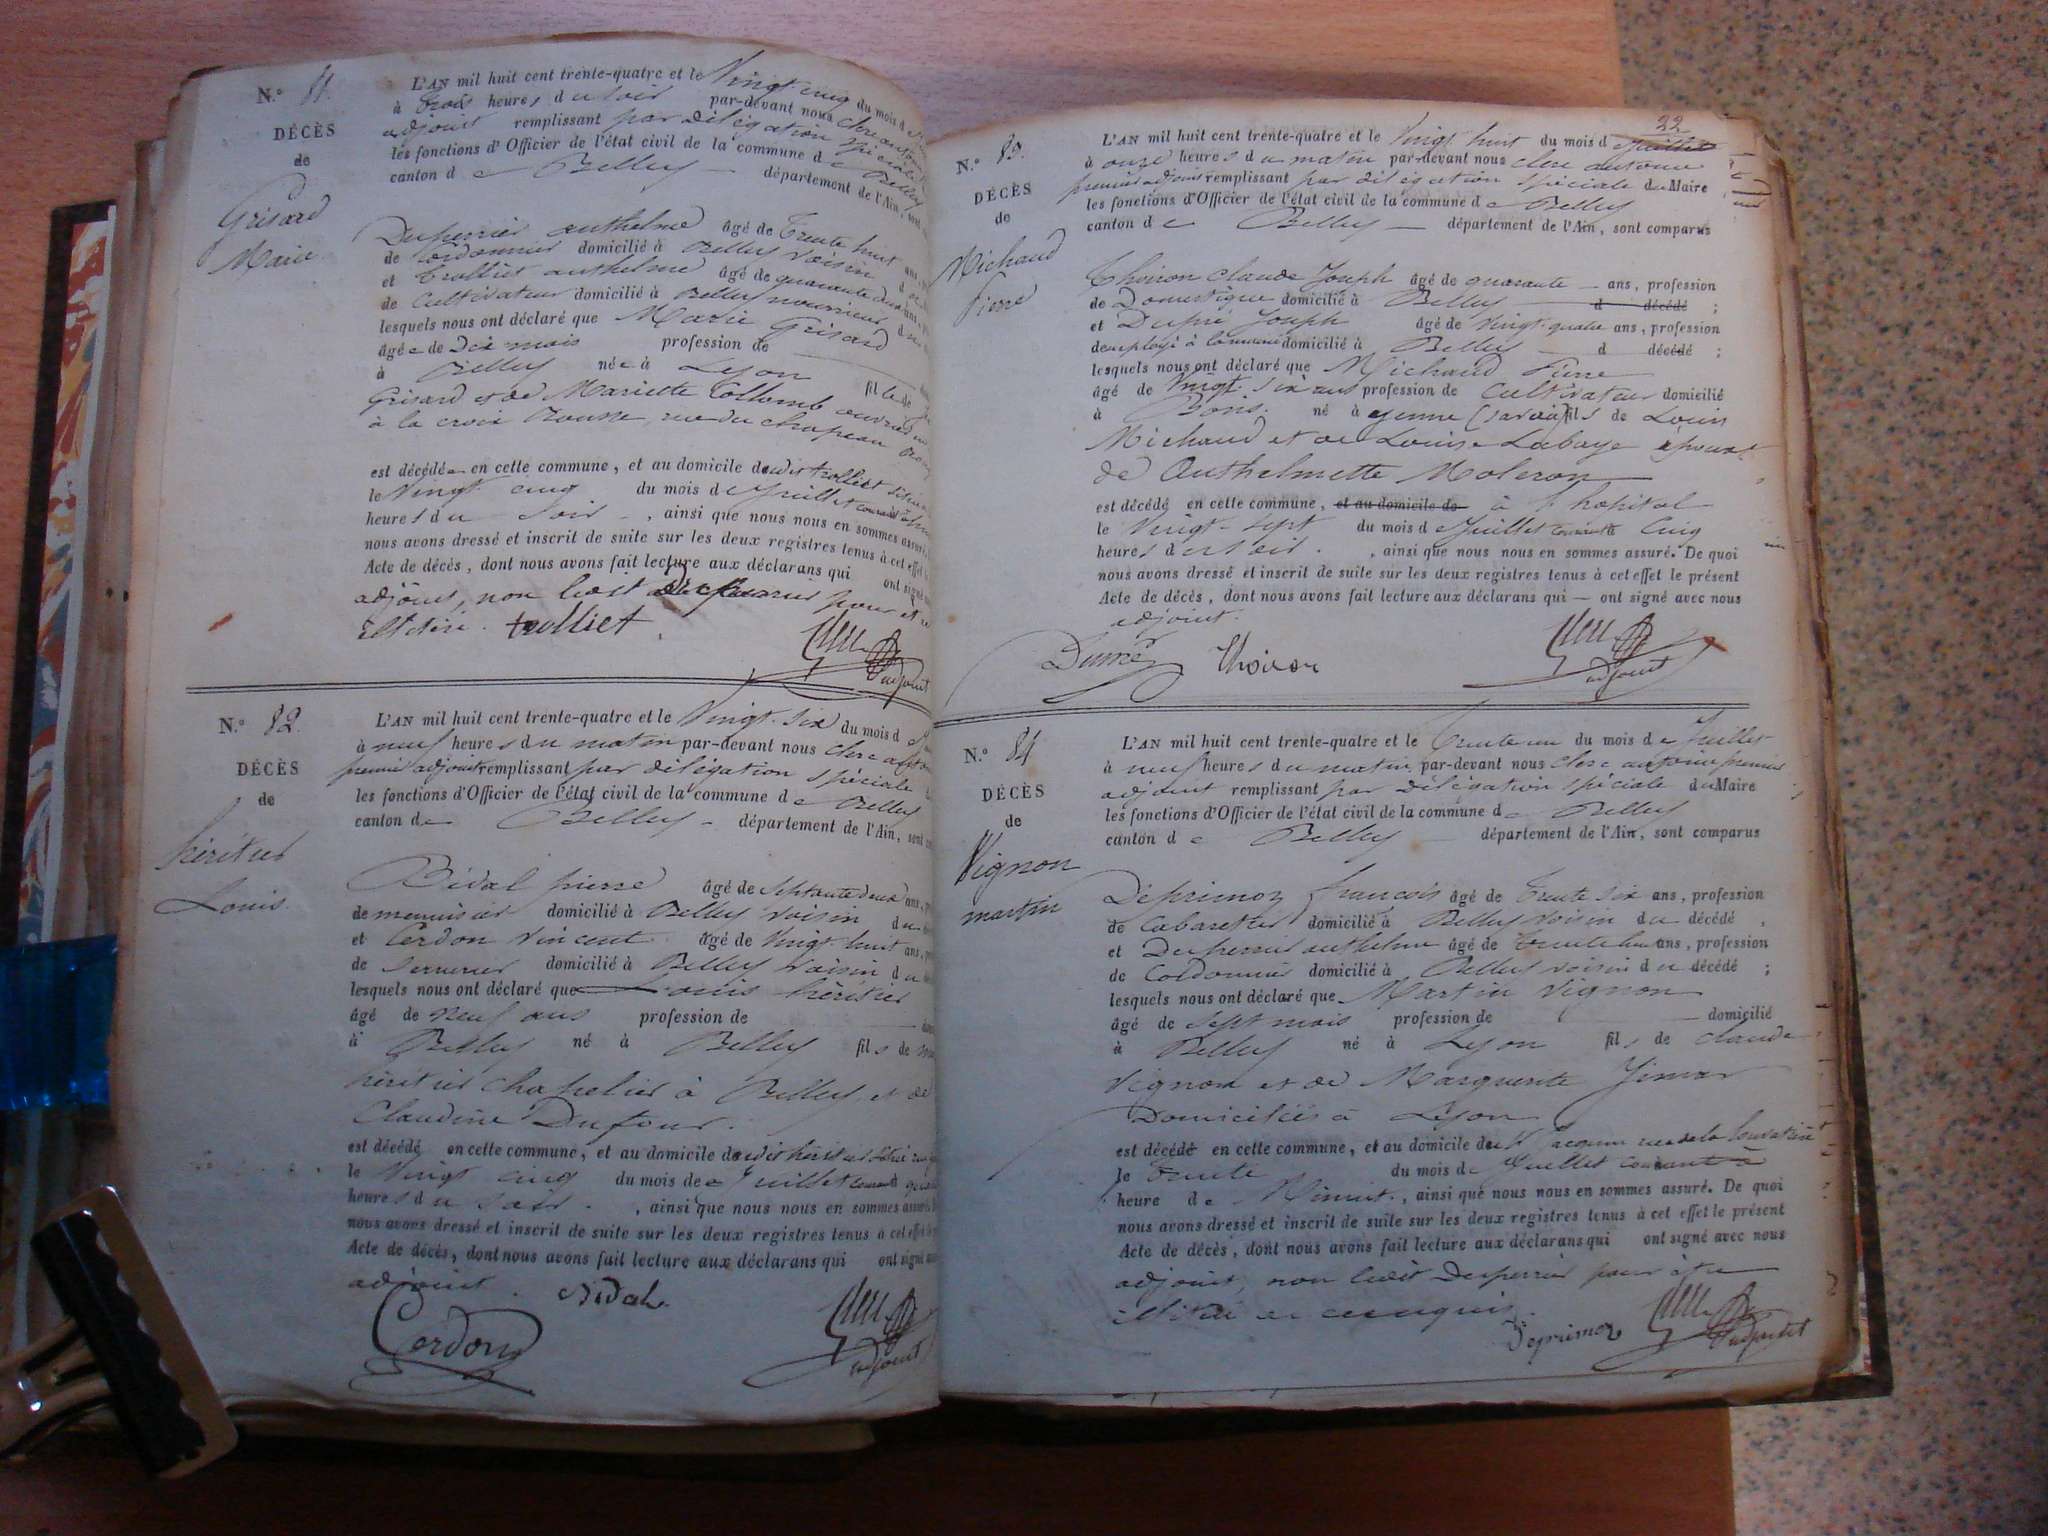 N.° 81.
DÉCÈS
de
Grisard
Marie
L'AN mil huit cent trente-quatre et le Vingt cinq du mois d
à trois heures du soir par-devant nous Clerc antoine
adjoint remplissant par délégation spéciale
les fonctions d'Officier de l'état civil de la commune de Belley
canton de Belley département de l'Ain, sont
Duperrier anthelme âgé de Trente huit ans
de cordonnier domicilié à Belley voisin d
et Trolliet anthelme âgé de quarante deux ans
de Cultivateur domicilié à Belley nourricier d
lesquels nous ont déclaré que Marie Grisard
âgée de Dix mois profession de
à Belley née à Lyon fille de
Grisard et de Mariette Collomb ouvrier en
à la croix Rousse, rue du chapeau Rouge
est décédée en cette commune, et au domicile dudit trolliet
le Vingt cinq du mois de Juillet courant à
heures du soir, ainsi que nous nous en sommes assuré.
nous avons dressé et inscrit de suite sur les deux registres tenus à cet effet le
Acte de décès, dont nous avons fait lecture aux déclarans qui ont signé
adjoint, non ledit Duperrier pour
illitéré. trolliet
Clerc
adjoint
N.° 82.
DÉCÈS
de
héritier
Louis.
L'AN mil huit cent trente-quatre et le Vingt-six du mois d
à neuf heures du matin par-devant nous Clerc antoine
premier adjoint remplissant par délégation spéciale
les fonctions d'Officier de l'état civil de la commune de Belley
canton de Belley département de l'Ain, sont
Bidal pierre âgé de septante deux ans
de menuisier domicilié à Belley voisin du
et Cerdon Vincent âgé de Vingt huit ans
de serrurier domicilié à Belley voisin du
lesquels nous ont déclaré que Louis héritier
âgé de neuf ans profession de
à Belley né à Belley fils de
héritier chapelier à Belley, et de
Claudine Dufour.
est décédé en cette commune, et au domicile dudit héritier
le Vingt cinq du mois de Juillet courant
heures du soir., ainsi que nous nous en sommes assuré.
nous avons dressé et inscrit de suite sur les deux registres tenus à cet effet le
Acte de décès, dont nous avons fait lecture aux déclarans qui ont signé
adjoint. Bidal
Cerdon
Clerc
adjoint
22
N.° 83.
DÉCÈS
de
Michaud
Pierre
L'AN mil huit cent trente-quatre et le Vingt huit du mois de Juillet
à onze heures du matin par-devant nous Clerc antoine
premier adjoint remplissant par délégation spéciale du Maire
les fonctions d'Officier de l'état civil de la commune de Belley
canton de Belley département de l'Ain, sont comparus
Thoiron Claude Joseph âgé de quarante ans, profession
de Domestique domicilié à Belley d décédé ;
et Dupré Joseph âgé de Vingt-quatre ans, profession
domicilié à Belley d décédé ;
lesquels nous ont déclaré que Michaud Pierre
âgé de Vingt-six ans profession de Cultivateur domicilié
à Bons. né à yenne (Savoie) fils de Louis
Michaud et de Louise Labaye époux
de Anthelmette Moleron
est décédé en cette commune, et au domicile de à l'hopital
le Vingt-sept du mois de Juillet courant à Cinq
heures du soir., ainsi que nous nous en sommes assuré. De quoi
nous avons dressé et inscrit de suite sur les deux registres tenus à cet effet le présent
Acte de décès, dont nous avons fait lecture aux déclarans qui — ont signé avec nous
adjoint.
Dupré Thoiron Clerc
adjoint
N.° 84
DÉCÈS
de
Vignon
martin
L'AN mil huit cent trente-quatre et le Trente un du mois de Juillet
à neuf heures du matin par-devant nous Clerc antoine premier
adjoint remplissant par délégation spéciale du Maire
les fonctions d'Officier de l'état civil de la commune de Belley
canton de Belley département de l'Ain, sont comparus
Déprimoz françois âgé de Trente six ans, profession
de Cabaretier domicilié à Belley voisin du décédé
et Duperrier anthelme âgé de Trente huit ans, profession
de Cordonnier domicilié à Belley voisin du décédé ;
lesquels nous ont déclaré que Martin Vignon
âgé de sept mois profession de domicilié
à Belley né à Lyon fils de Claude
Vignon et de Marguerite
Domiciliés à Lyon
est décédé en cette commune, et au domicile de
le Trente du mois de Juillet courant à
heure de Minuit., ainsi que nous nous en sommes assuré. De quoi
nous avons dressé et inscrit de suite sur les deux registres tenus à cet effet le présent
Acte de décès, dont nous avons fait lecture aux déclarans qui ont signé avec nous
adjoint, non ledit Duperrier pour être
illitéré de ce enquis.
Deprimoz Clerc
adjoint